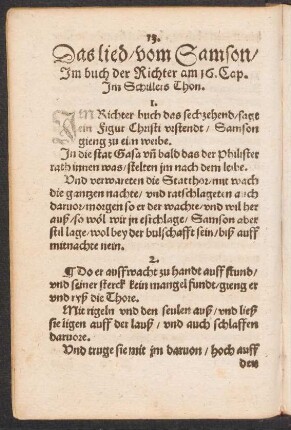 13.
Das lied/vom Samson/
Im buch der Richter am 16. Cap.
Im Schillers Thon.
1.
IM Richter buch das sechzehend/sagt
ein Figur Christi vistendt/ Samson
gieng zu ein weibe.
In die stat Gasa vñ bald das der Philister
rath innen was/stelten jm nach dem leibe.
Vnd verwareten die Statthor/mit wach
die gantzen nachte/ vnd ratschlageten auch
daruor/morgen so er der wachte/vnd wil her
auß/so wöl wir jn erschlage/ Samson aber
stil lage/wol bey der bulschafft sein/biß auff
mitnachte nein.
2.
¶ Do er auffwacht zu handt auff stund/
vnd seiner sterck kein mangel fundt/gieng er
vnd ryß die Thore.
Mit rigeln vnd den seulen auß/ vnd ließ
sie ligen auff der lauß/ vnd auch schlaffen
daruore.
Vnd truge sie mit jm daruon/ hoch auff
den